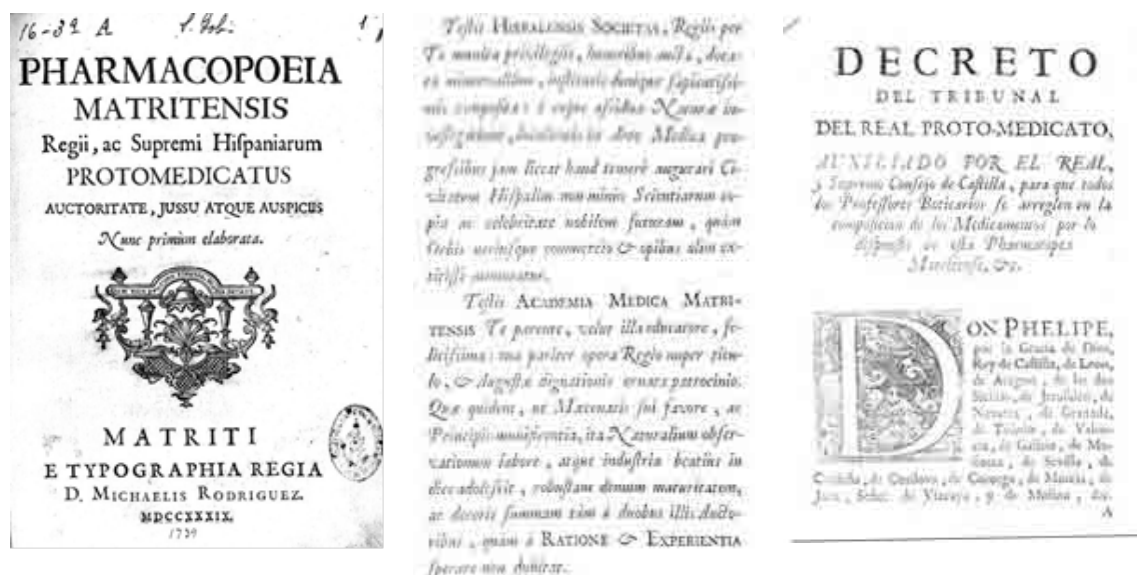 16-32 A
1
PHARMACOPOEIA
MATRITENSIS
Regii, ac Supremi Hiſpaniarum
PROTOMEDICATUS
AUCTORITATE, JUSSU ATQUE AUSPICIIS
Nunc primùm elaborata.
MATRITI
E TYPOGRAPHIA REGIA
D. MICHAELIS RODRIGUEZ.
MDCCXXXIX.
1739
Teſtis HISPALENSIS SOCIETAS, Regiis per
Te multis privilegiis, honoribus aucta,
Naturæ
in Arte Medica pro-
greſſibus jam liceat haud temerè augurari Ci-
vitatem Hiſpalim non minùs Scientiarum co-
pia ac celebritate nobilem futuram, quàm
commercio & opibus olim
Teſtis ACADEMIA MEDICA MATRI-
TENSIS Te parente, velut illa educatore, fe-
liciſſima: tua pariter opera Regio nuper titu-
lo, & Auguſtæ dignationis ornata patrocinio.
Quæ quidem, ut Mæcenatis ſui favore, ac
Principis munificentia, ita Naturalium obſer-
vationum labore, atque induſtria beatiùs in
dies adoleſcit, robuſtam demum maturitatem,
ac decoris ſummam tùm à duobus illis Aucto-
ribus, quàm à RATIONE & EXPERIENTIA
ſperare non dubitat.
DECRETO
DEL TRIBUNAL
DEL REAL PROTO-MEDICATO,
AUXILIADO POR EL REAL,
y Supremo Conſejo de Caſtilla, para que todos
los Profeſſores Boticarios ſe arreglen en la
compoſicion de los Medicamentos por lo
diſpueſto en eſta Pharmacopea
Matritenſe, &c.
DON PHELIPE,
por la Gracia de Dios,
Rey de Caſtilla, de Leon,
de Aragon, de las dos
Sicilias, de Jeruſalèn, de
Navarra, de Granada,
de Toledo, de Valen-
cia, de Galicia, de Ma-
llorca, de Sevilla, de
Cerdeña, de Cordova, de Corcega, de Murcia, de
Jaen, Señor de Vizcaya, y de Molina, &c.
A